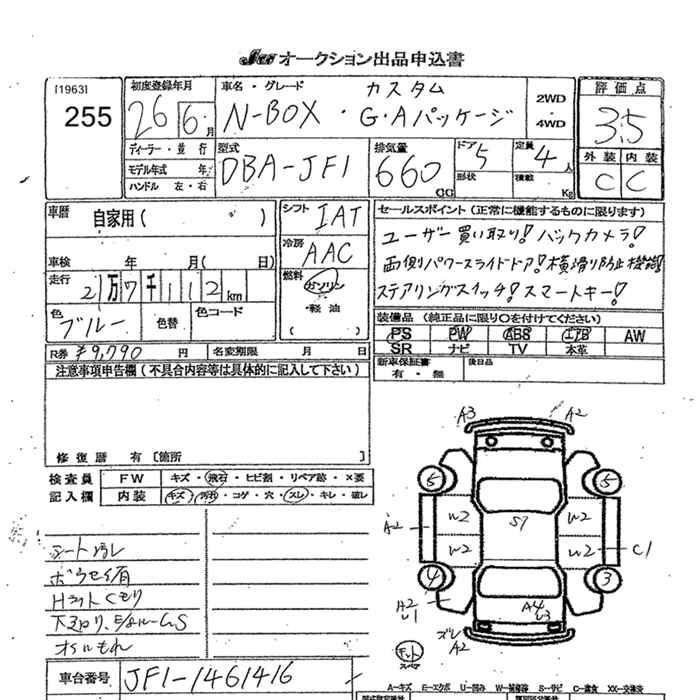 JU オークション出品申込書
[1963]
255
初度登録年月
26 6 月
ディーラー・並行
モデル年式 年
ハンドル 左・右
車名・グレード
カスタム
N-BOX ・ G・Aパッケージ
2WD
・
4WD
型式
DBA-JF1
排気量
660 CC
ドア
5
形状
定員
4 人
積載 Kg
評価点
3.5
外装 内装
C C
車歴
自家用( )
車検 年 月( 日)
走行
2万7千112 km
色
ブルー
色替
色コード
シフト
IAT
冷房
AAC
燃料
ガソリン
・軽油
セールスポイント(正常に機能するものに限ります)
ユーザー買い取り! バックカメラ!
両側パワースライドドア! 横滑り防止機能!
ステアリングスイッチ! スマートキー!
装備品(純正品に限り○を付けてください)
PS PW ABS エアB AW
SR ナビ TV 本革
新車保証書
有・無
後日品
R券 ¥9,790 円
名変期限 月 日
注意事項申告欄(不具合内容等は具体的に記入して下さい)
修復歴 有〔箇所 〕
検査員
記入欄
FW キズ・飛石・ヒビ割・リペア跡・×要
内装 キズ・汚れ・コゲ・穴・スレ・キレ・破レ
シート汚レ
ボウセイ有
Hライトくもり
下廻り、
オイルもれ
A3 A2
5 5
A2 W2 S7 W2
W2 W2 C1
4 3
A2
U1
A4
U3
ズレ
A2
車台番号 JF1-1461416
A-キズ E-エクボ U-凹み W-補修跡 S-サビ C-腐食 XX-交換済